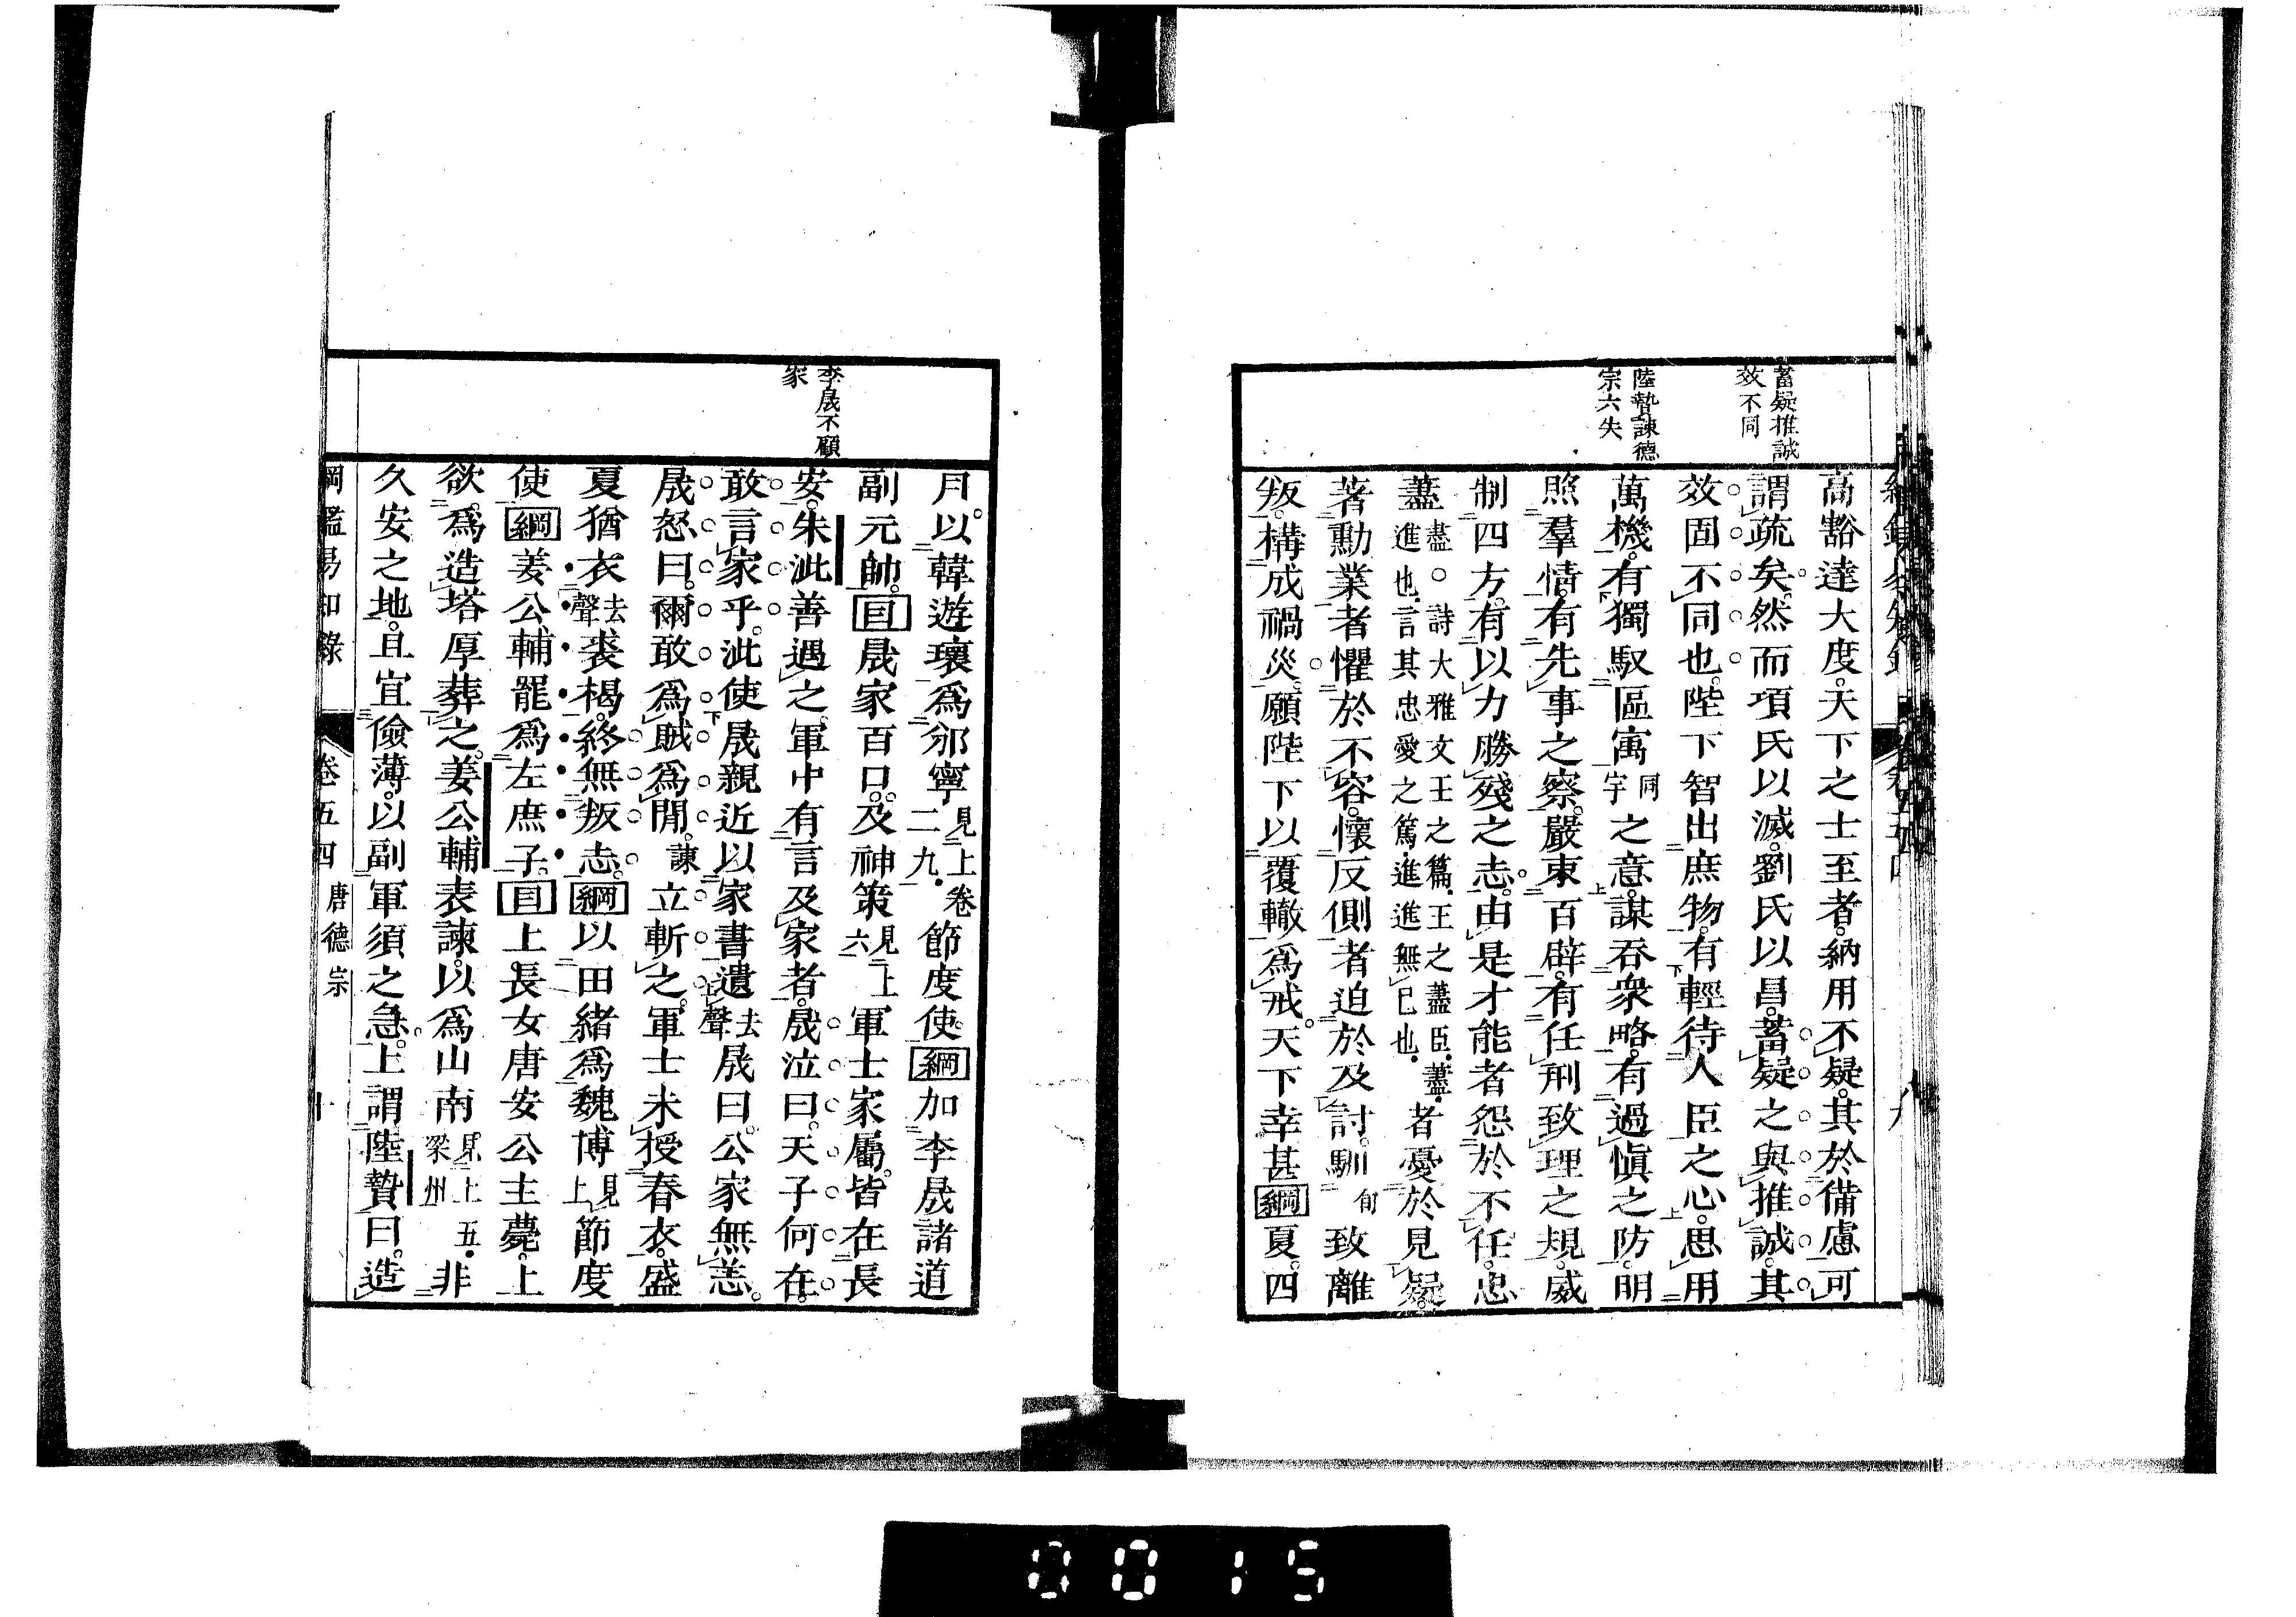 蓄疑推誠
效不同
陸贄諫德
宗六失
高豁達大度。天下之士至者。納用不疑。其於備慮可
謂疏矣。然而項氏以滅。劉氏以昌。蓄疑之與推誠。其
效固不同也。陛下智出庶物。有輕待人臣之心。思用
萬機。有獨馭區寓同宇之意。謀吞衆略。有過愼之防。明
照羣情。有先事之察。嚴束百辟。有任刑致理之規。威
制四方。有以力勝殘之志。由是才能者怨於不任。忠
藎盡。○詩大雅文王之篇。王之藎臣。藎。進也。言其忠愛之篤。進進無已也。者憂於見疑。
著勳業者懼於不容。懷反側者迫於及討。馴旬致離
叛。構成禍災。願陛下以覆轍爲戒。天下幸甚綱夏。四
李晟不顧
家
月。以韓遊瓌爲邠寧見上卷二九。節度使。綱加李晟諸道
副元帥。目晟家百口。及神策見上六軍士家屬。皆在長
安。朱泚善遇之。軍中有言及家者。晟泣曰。天子何在。
敢言家乎。泚使晟親近以家書遺去聲晟曰。公家無恙。
晟怒曰。爾敢爲賊爲閒。諫立斬之。軍士未授春衣。盛
夏猶衣去聲裘褐。終無叛志。綱以田緒爲魏博見上節度
使綱姜公輔罷爲左庶子。目上長女唐安公主薨。上
欲爲造塔厚葬之。姜公輔表諫。以爲山南。見上五。梁州非
久安之地。且宜儉薄。以副軍須之急。上謂陸贄曰。造
綱鑑易知錄 卷五四 唐德宗 十
0015